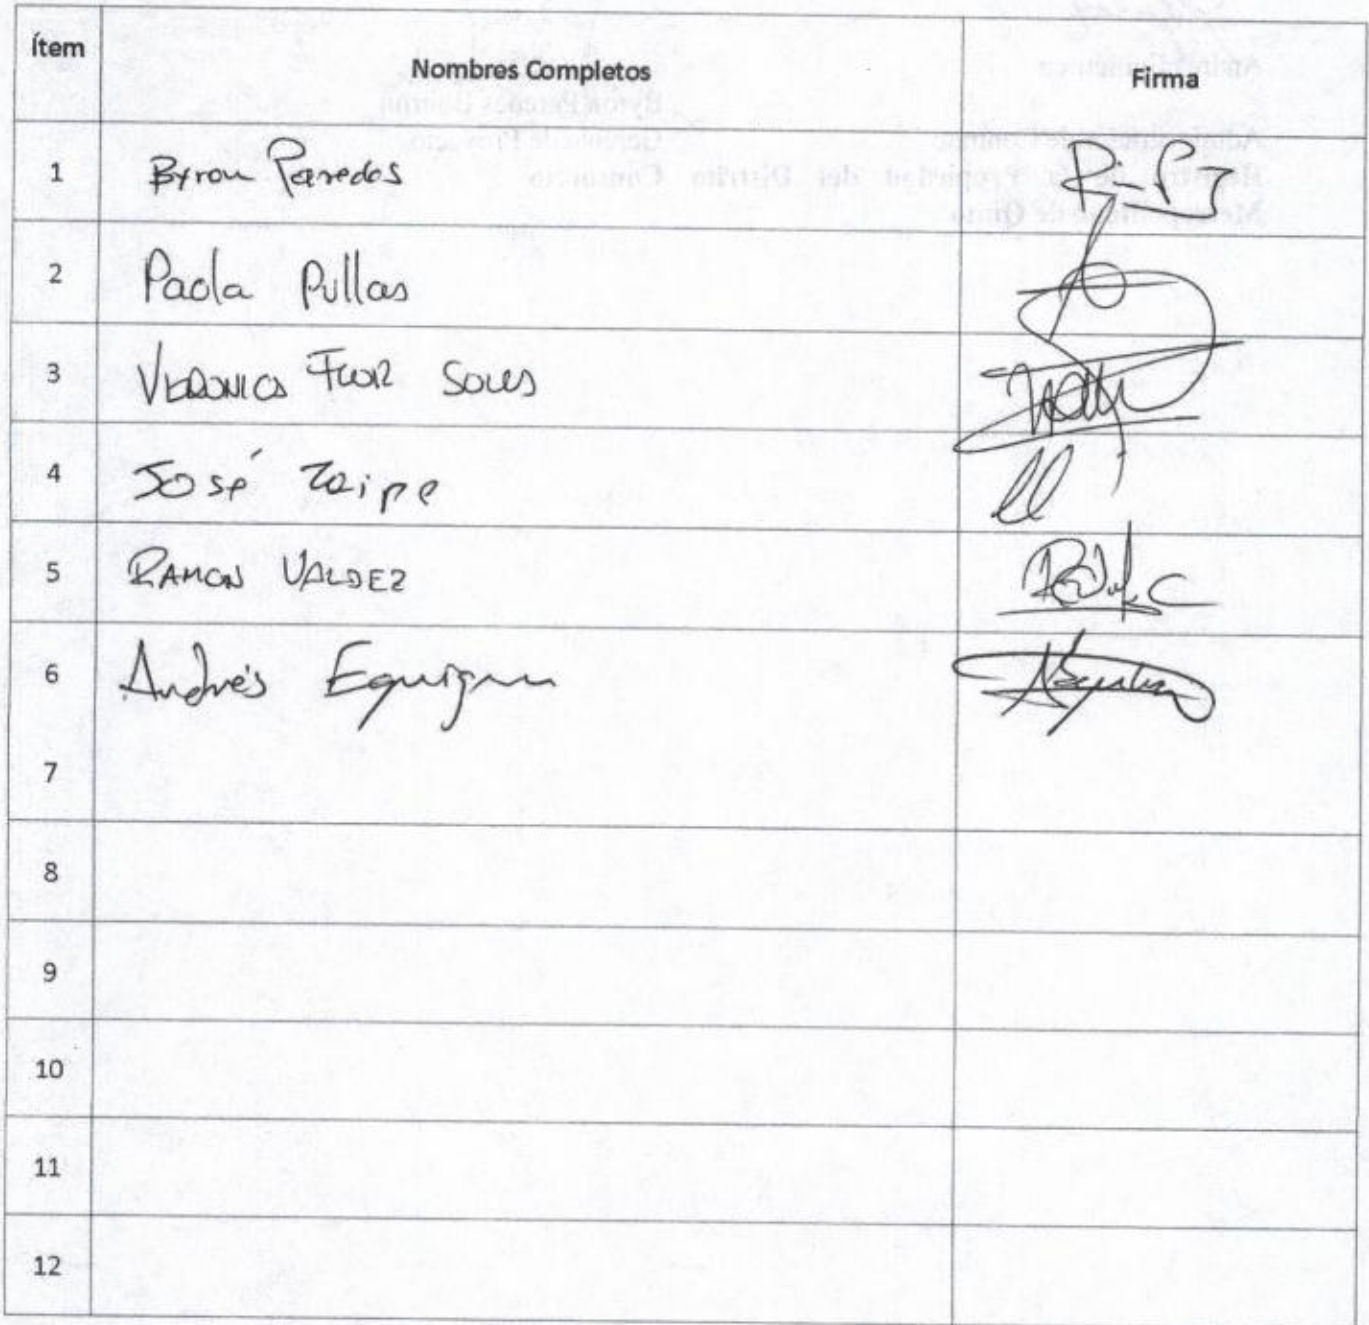 Ítem Nombres Completos Firma
1 Byron Paredes
2 Paola Pullas
3 VERONICA FLOR SOLIS
4 José Taipe
5 RAMON VALDEZ
6 Andrés Eguiguren
7
8
9
10
11
12